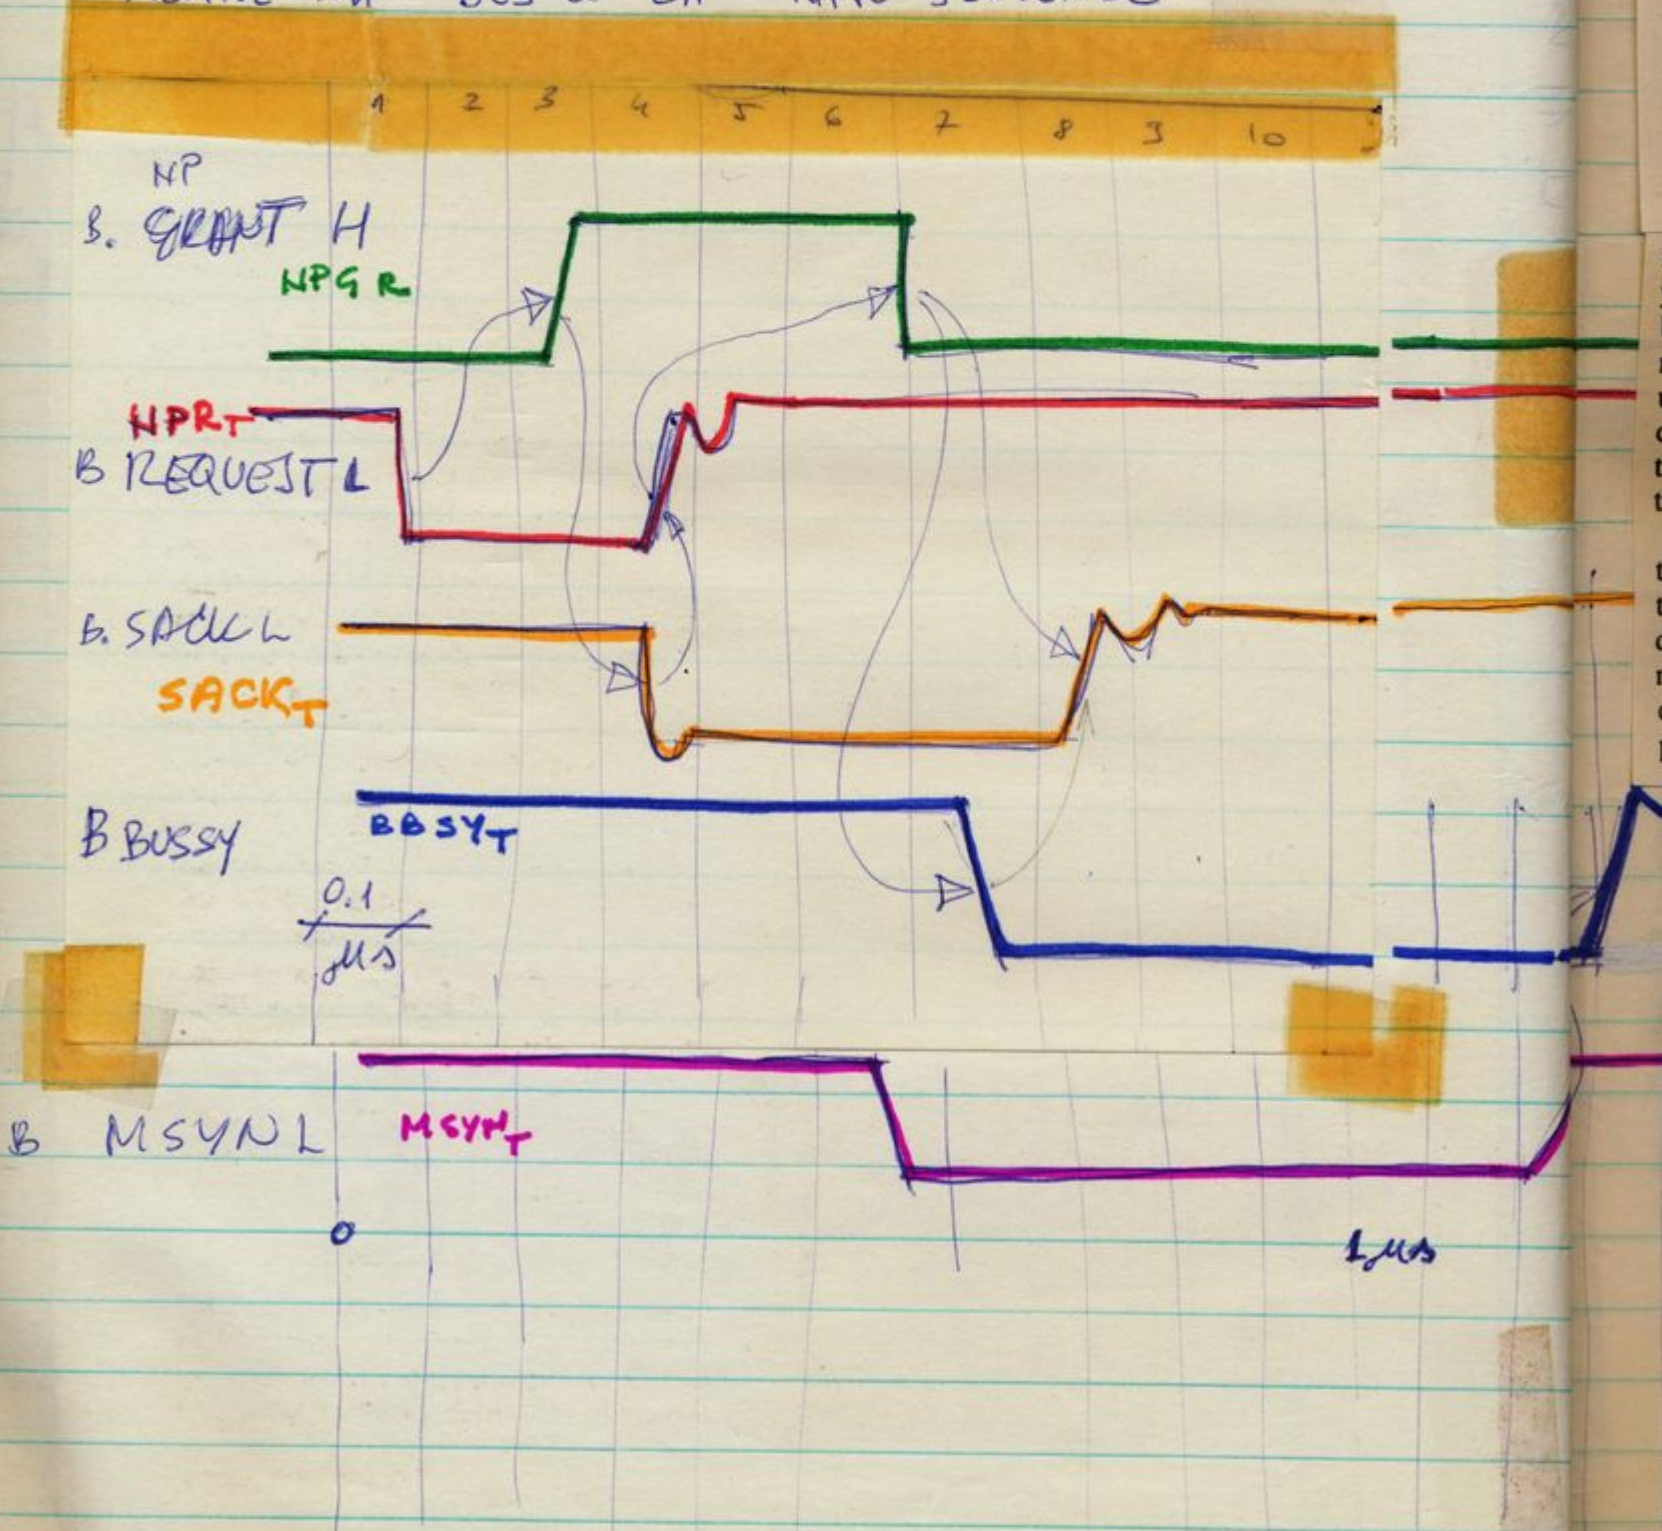 1 2 3 4 5 6 7 8 9 10
NP
B. GRANT H
NPGR
NPRT
B REQUEST L
B. SACK L
SACKT
B BUSSY
BBSYT
0.1
μs
B MSYN L
MSYNT
0
1μs